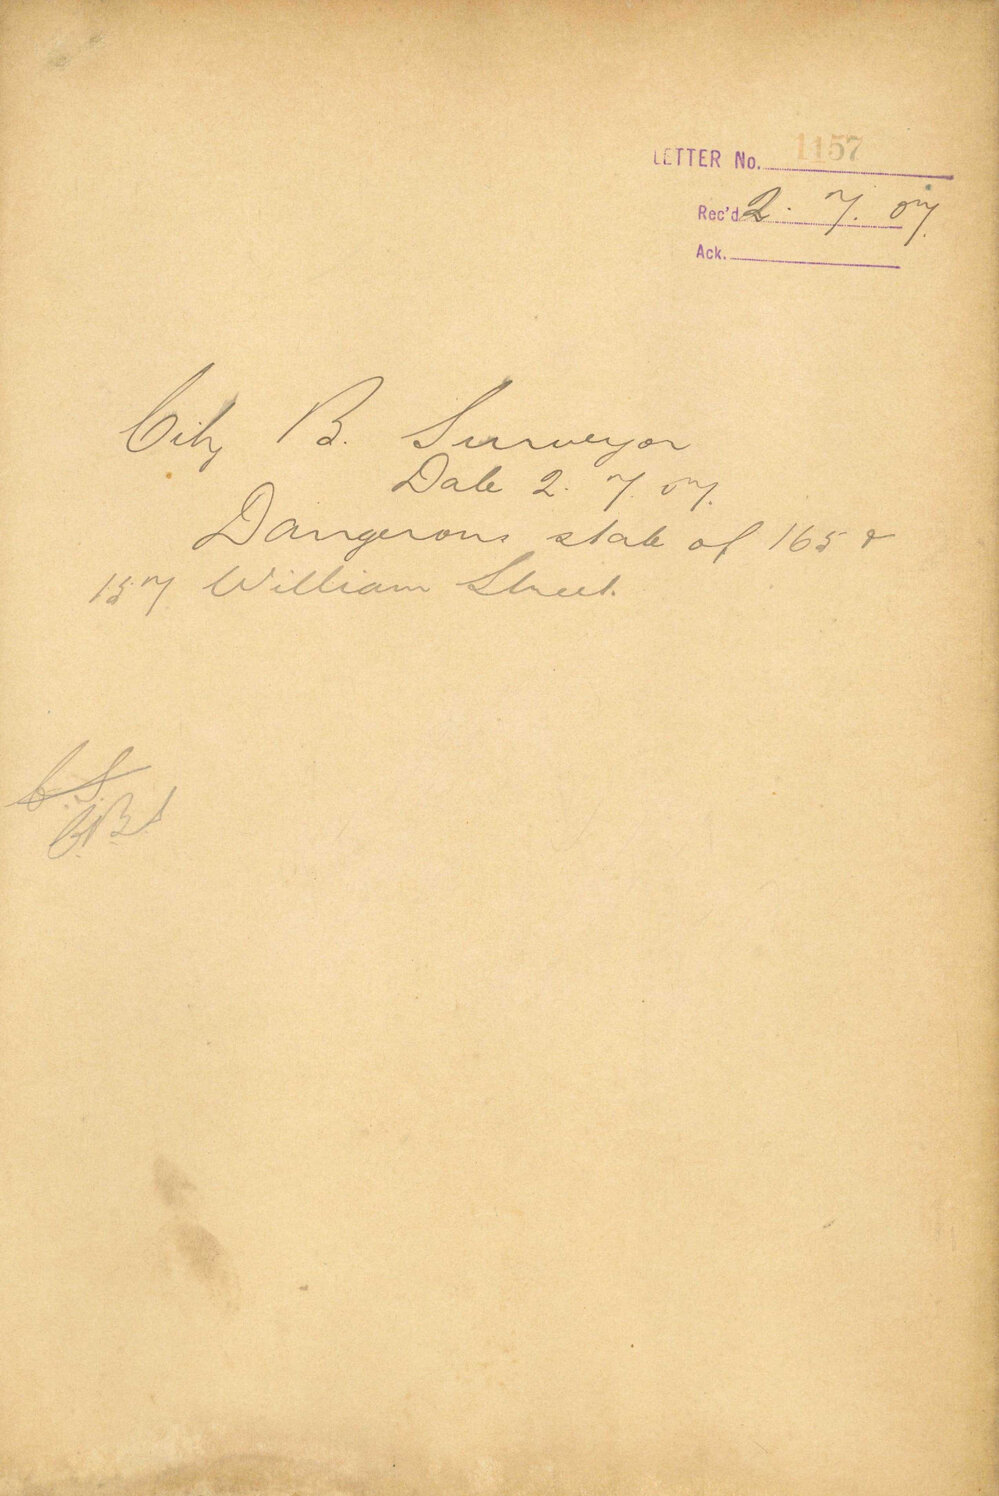 LETTER No. 1157
Rec'd 2. 7. 07.
Ack.
City B. Surveyor
Date 2. 7. 07.
Dangerous state of 165 &
157 William Street.
C.S.
C.B.S